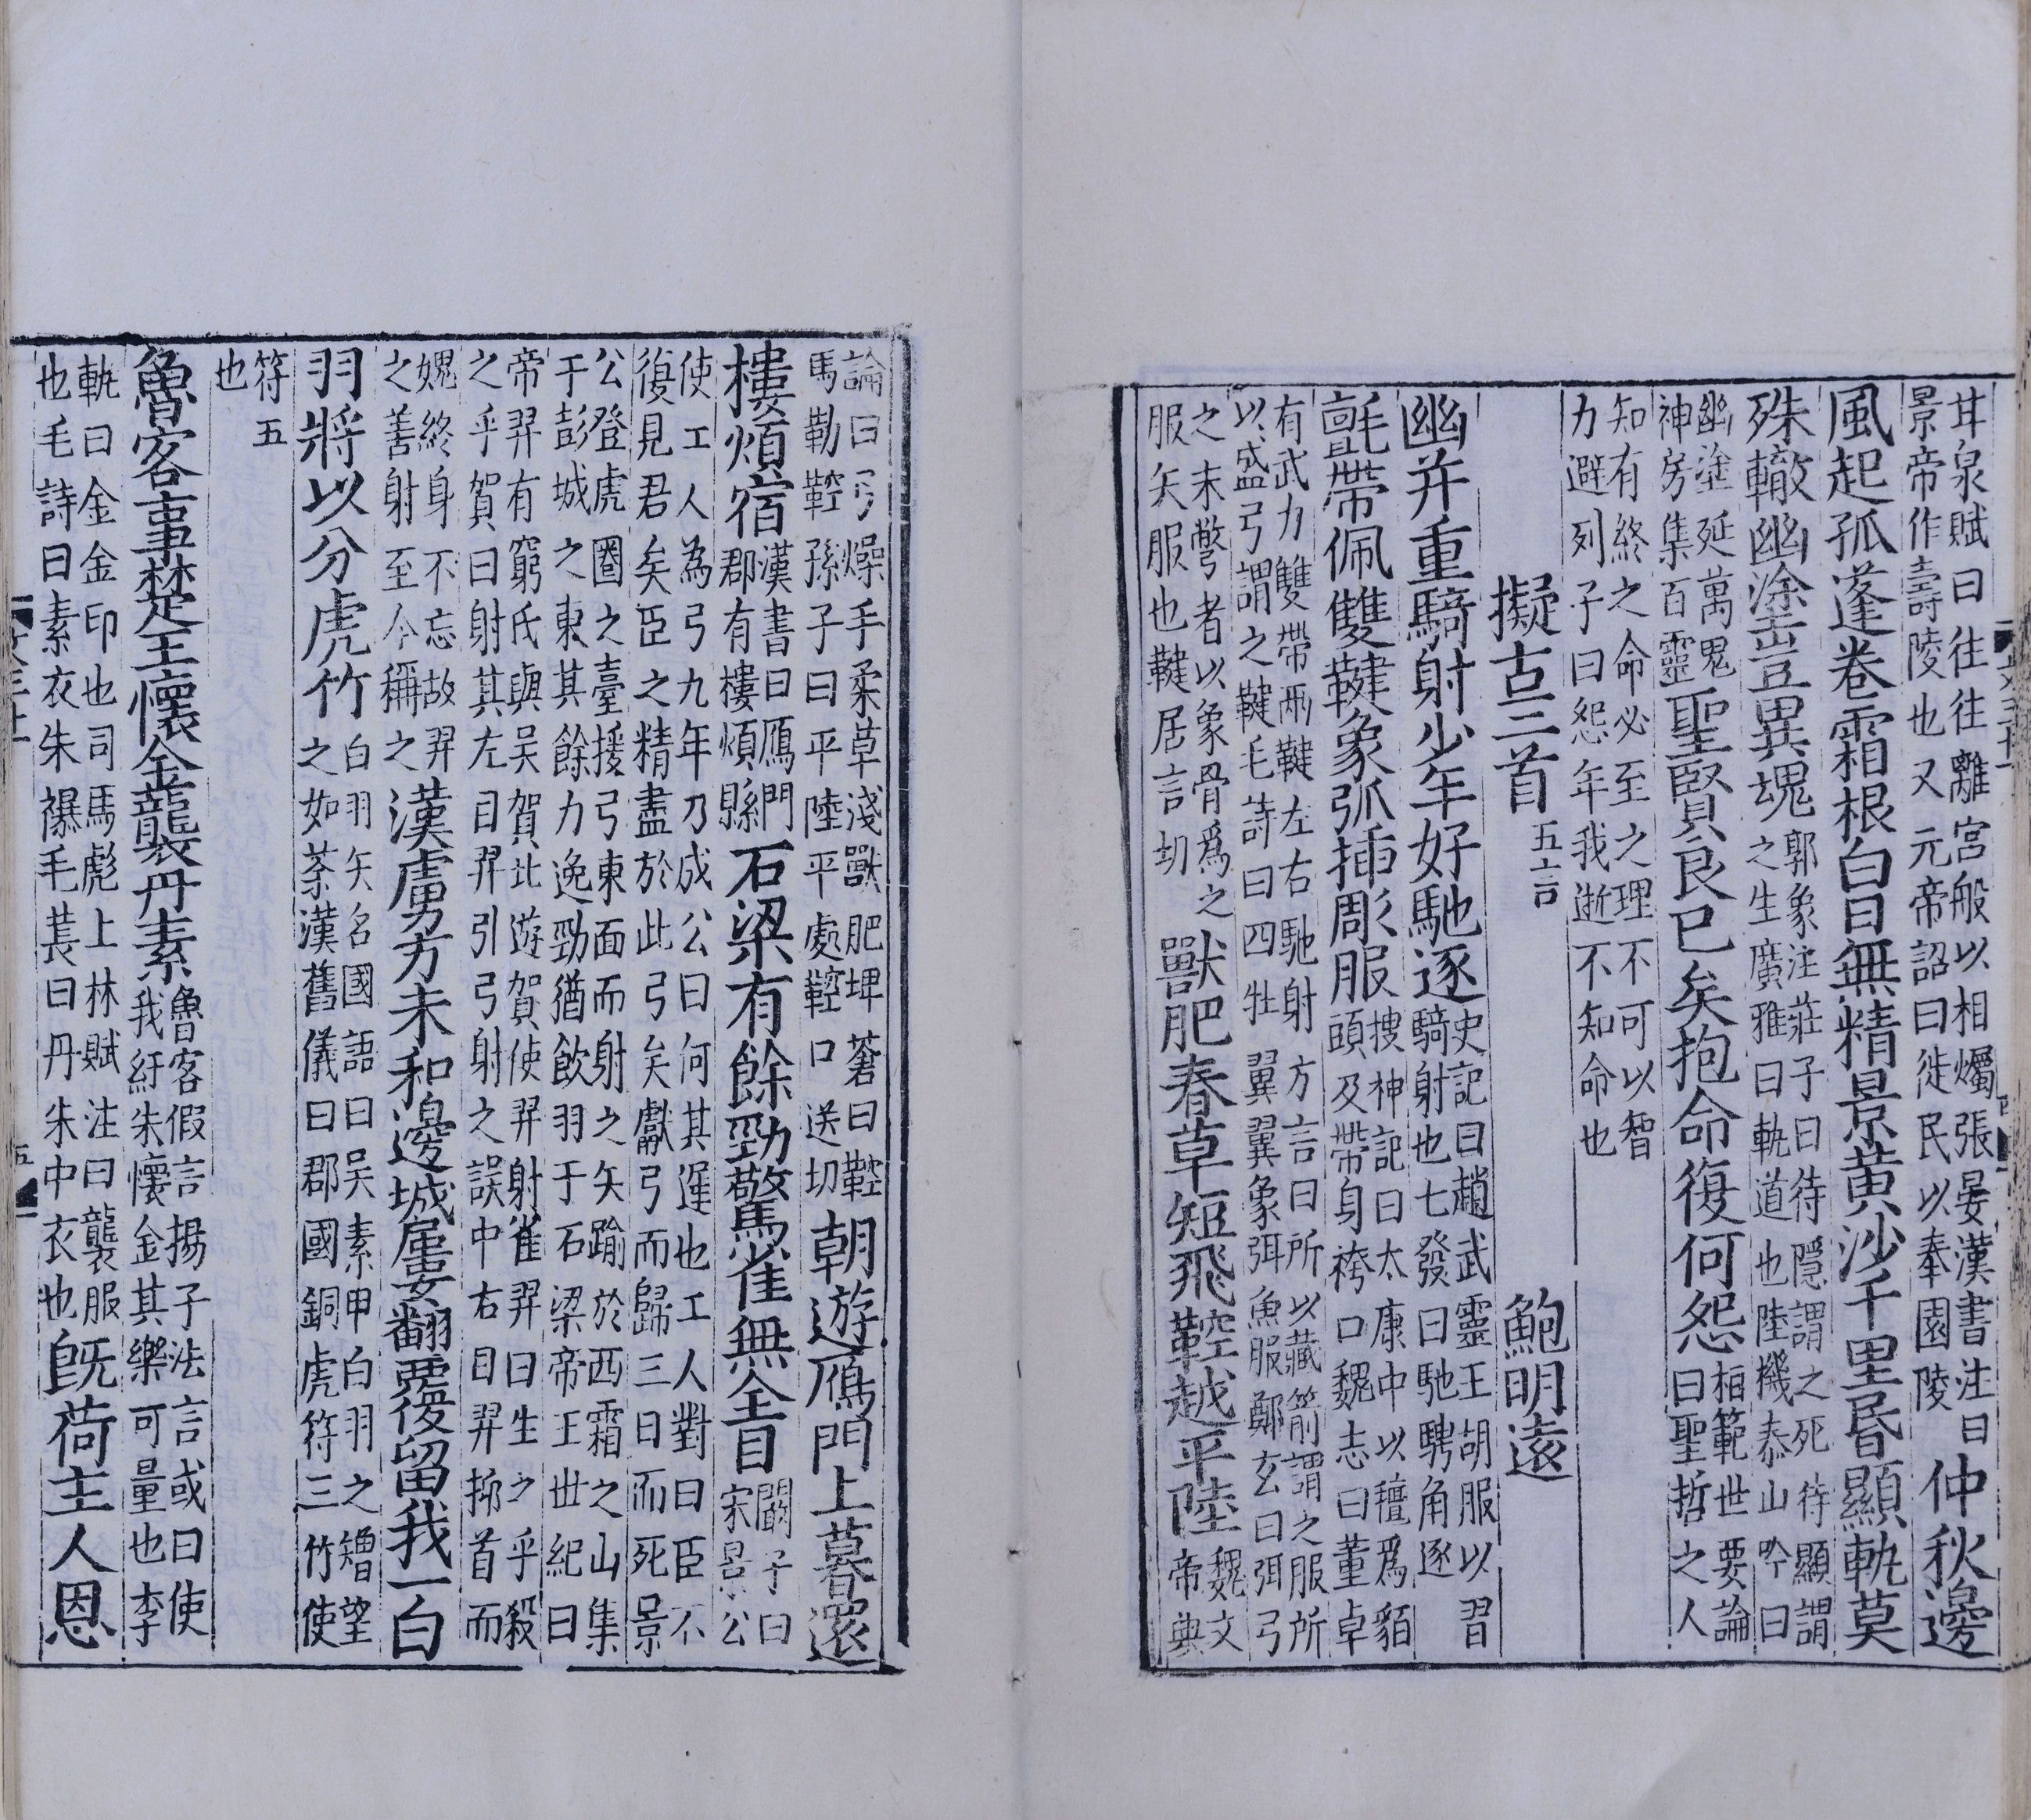 甘泉賦曰往往離宮般以相爥張晏漢書注曰
景帝作壽陵也又元帝詔曰徙民以奉園陵
仲秋邊
風起孤蓬卷霜根白日無精景黃沙千里昏顯軌莫
殊轍幽塗豈異魂
郭象注莊子曰待隱謂之死待顯謂
之生廣雅曰軌道也陸機泰山吟曰
幽塗延萬鬼
神房集百靈
聖賢良已矣抱命復何怨
栢範世要論
曰聖哲之人
知有終之命必至之理不可以智
力避列子曰怨年我逝不知命也
擬古三首 五言 鮑明遠
幽并重騎射少年好馳逐
史記曰趙武靈王胡服以習
騎射也七發曰馳騁角逐
氈帶佩雙鞬象弧插彫服
搜神記曰太康中以氊爲貊
頭及帶身袴口魏志曰董卓
有武力雙帶兩鞬左右馳射方言曰所以藏箭謂之服所
以盛弓謂之鞬毛詩曰四牡翼翼象弭魚服鄭玄曰弭弓
之末彆者以象骨爲之
服矢服也鞬居言切
獸肥春草短飛鞚越平陸
魏文
帝典
論曰弓燥手柔草淺獸肥埤蒼曰鞚
馬勒鞚孫子曰平陸平處鞚口送切
朝遊鴈門上暮還
樓煩宿
漢書曰鴈門
郡有樓煩縣
石梁有餘勁驚雀無全目
闞子曰
宋景公
使工人為弓九年乃成公曰何其遲也工人對曰臣不
復見君矣臣之精盡於此弓矣獻弓而歸三日而死景
公登虎圈之臺援弓東面而射之矢踰於西霜之山集
于彭城之東其餘力逸勁猶飲羽于石梁帝王世紀曰
帝羿有窮氏與吳賀北遊賀使羿射雀羿曰生之乎殺
之乎賀曰射其左目羿引弓射之誤中右目羿抑首而
媿終身不忘故羿
之善射至今稱之
漢虜方未和邊城屢翻覆留我一白
羽將以分虎竹
白羽矢名國語曰吳素甲白羽之矰望
之如荼漢舊儀曰郡國銅虎符三竹使
符五
也
魯客事楚王懷金襲丹素
魯客假言揚子法言或曰使
我紆朱懷金其樂可量也李
軌曰金金印也司馬彪上林賦注曰襲服
也毛詩曰素衣朱襮毛萇曰丹朱中衣也
既荷主人恩